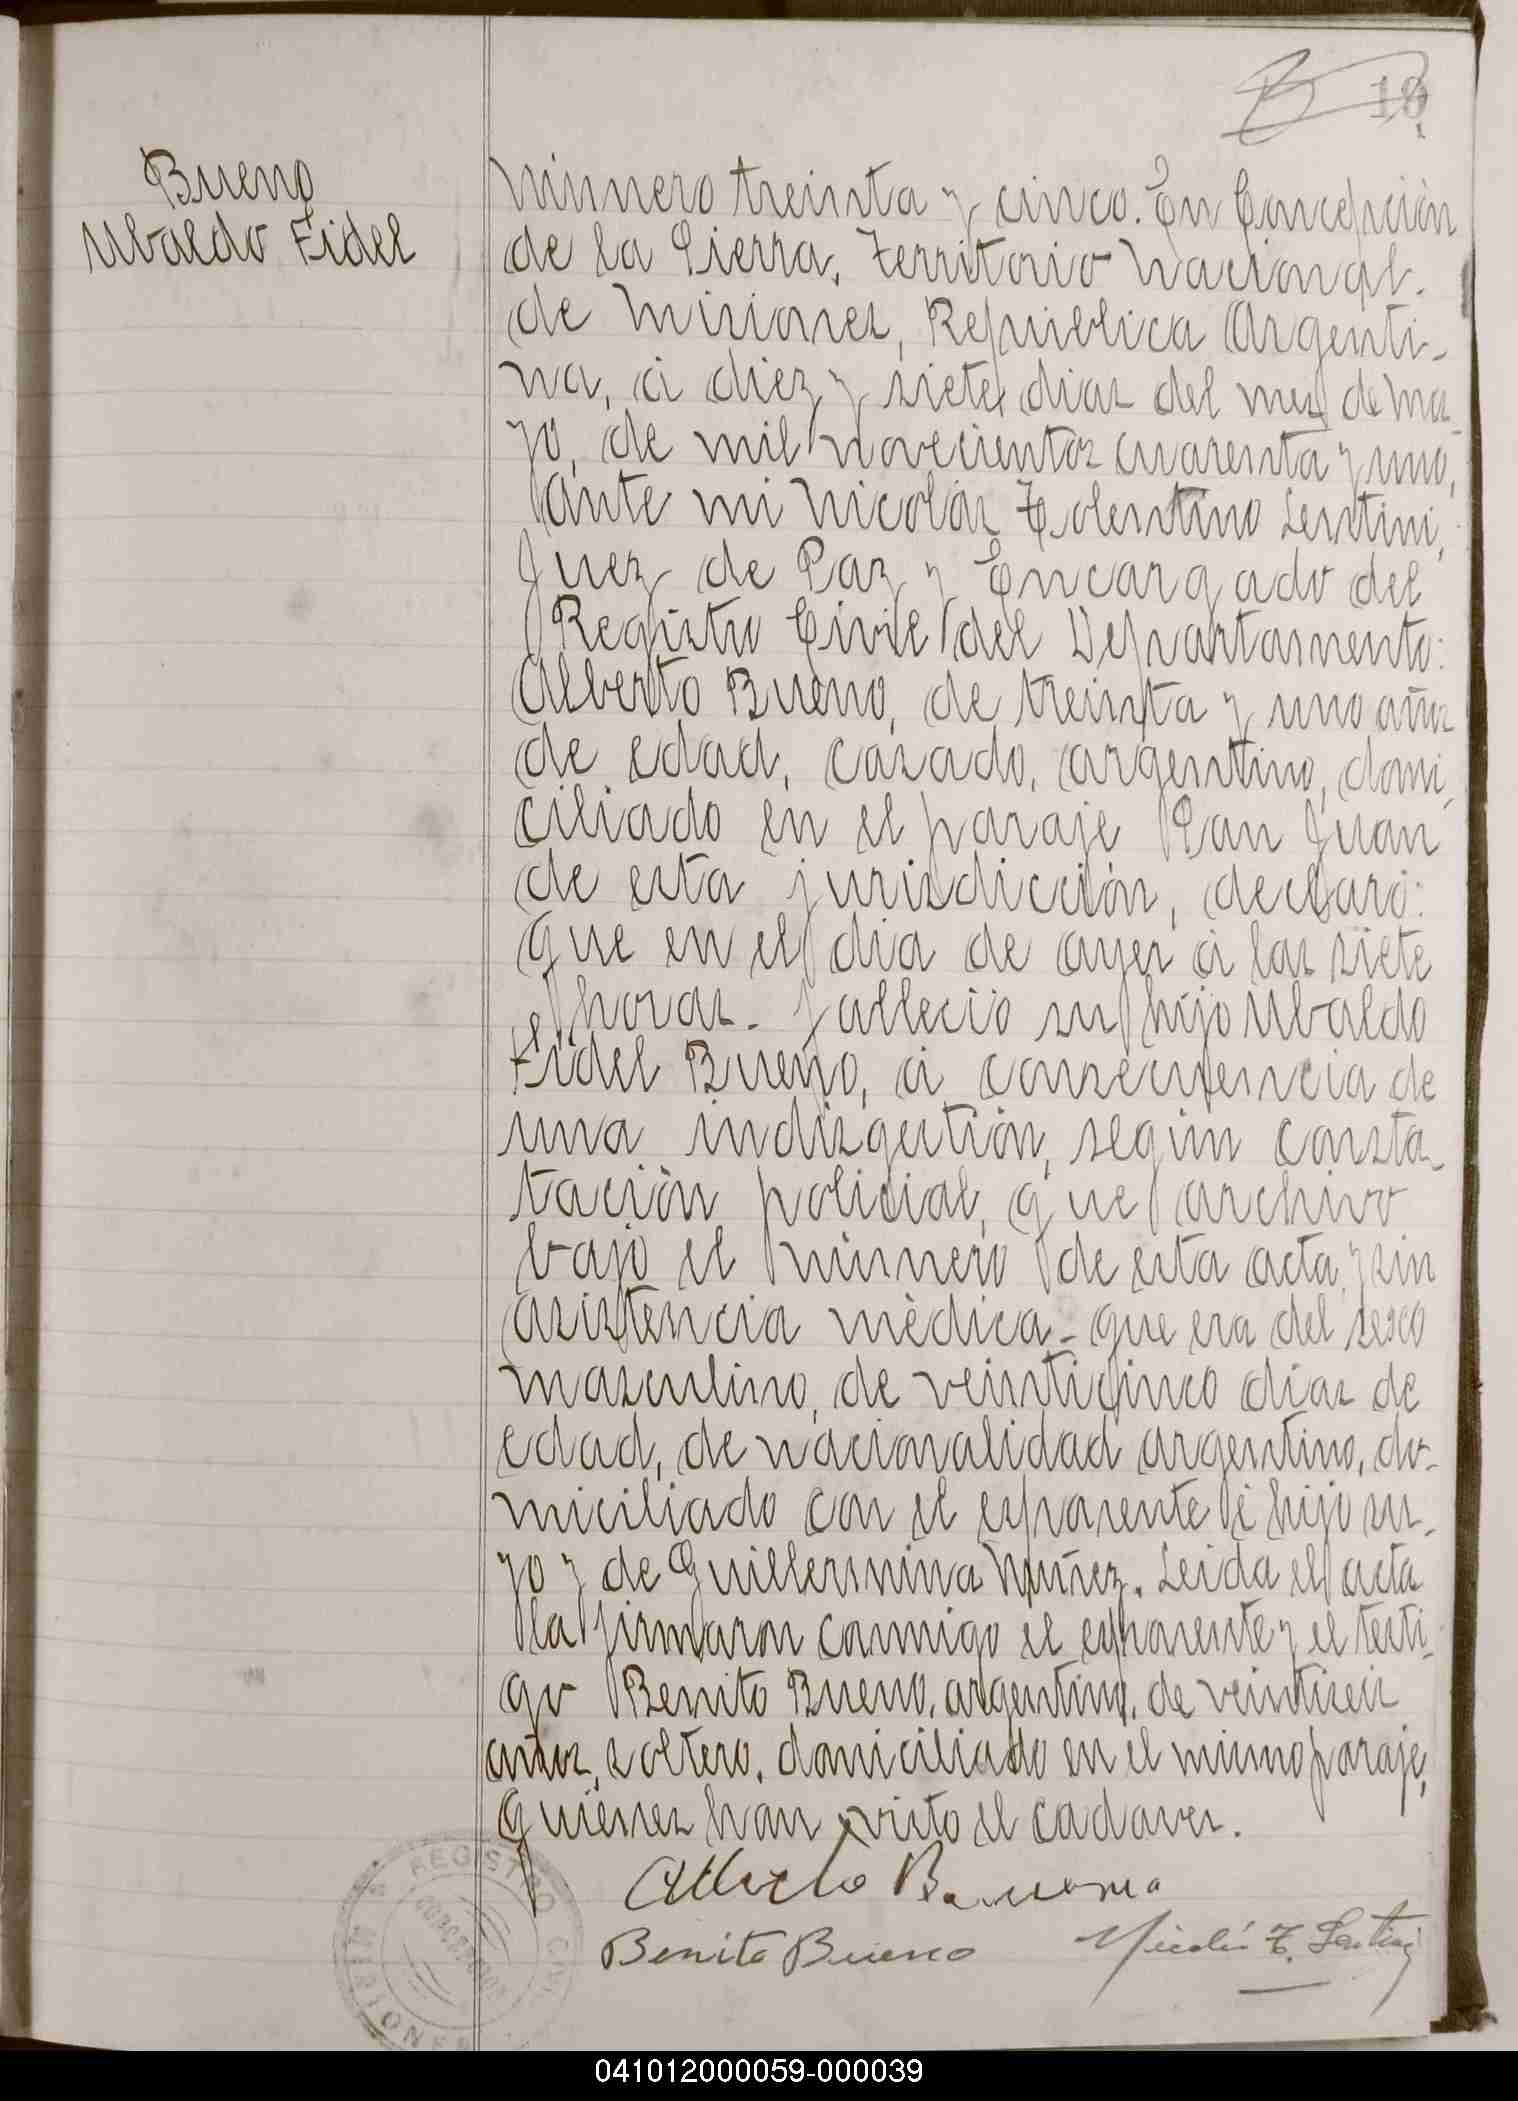 18
Bueno
Ubaldo Fidel
Número treinta y cinco. En Concepción
de la Sierra, Territorio Nacional
de Misiones, República Argenti-
na, á diez y siete dias del mes de ma-
yo, de mil novecientos cuarenta y uno,
ante mi Nicolás Tolentino Lentini,
Juez de Paz y Encargado del
Registro Civil del Departamento:
Alberto Bueno, de treinta y uno años
de edad, casado, argentino, domi-
ciliado en el paraje San Juan
de esta jurisdicción, declaró:
Que en el dia de ayer á las siete
horas- falleció su hijo Ubaldo
Fidel Bueno, á consecuencia de
una indisgestión, según consta-
tación policial, que archivo
bajo el número de esta acta y sin
asistencia mèdica- que era del sexo
masculino, de veinticinco dias de
edad, de nacionalidad argentino, do-
miciliado con el esponente é hijo su-
yo y de Guillermina Nuñez. Leida el acta
la firmaron conmigo el esponente y el testi-
go Benito Bueno, argentino, de veintiseis
años, soltero, domiciliado en el mismo paraje,
quienes han visto el cadaver.
Alberto Bueno
Benito Bueno
Nicolás T. Lentini
REGISTRO CIVIL
MISIONES
041012000059-000039